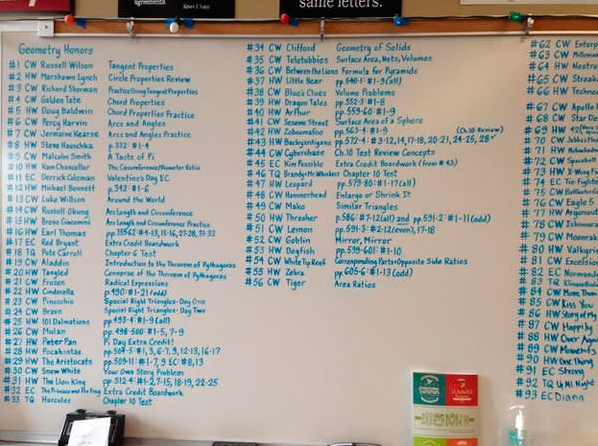 agreements.
same letters.
Geometry Honors
#1 CW Russell Wilson Tangent Properties
#2 HW Marshawn Lynch Circle Properties Review
#3 CW Richard Sherman Practice Using Tangent Properties
#4 CW Golden Tate Chord Properties
#5 HW Doug Baldwin Chord Properties Practice
#6 CW Percy Harvin Arcs and Angles
#7 CW Jermaine Kearse Arcs and Angles Practice
#8 HW Steve Hauschka p.332: #1-4
#9 CW Malcolm Smith A Taste of Pi
#10 HW Kam Chancellor The Circumference/Diameter Ratio
#11 EC Derrick Coleman Valentine's Day EC
#12 HW Michael Bennett p.342: #1-6
#13 CW Luke Wilson Around the World
#14 CW Russell Okung Arc Length and Circumference
#15 HW Breno Giacomini Arc Length and Circumference Practice
#16 HW Earl Thomas #4-13, 15-16, 27-28, 31-32
#17 EC Red Bryant Extra Credit Boardwork
#18 TQ Pete Carroll Chapter 6 Test
#19 CW Aladdin Introduction to the Theorem of Pythagoras
#20 HW Tangled Converse of the Theorem of Pythagoras
#21 CW Frozen Radical Expressions
#22 HW Cinderella p.490: #1-21 (odd)
#23 CW Pinocchio Special Right Triangles- Day One
#24 CW Brave Special Right Triangles- Day Two
#25 HW 101 Dalmations pp. 493-4: #1-9 (all)
#26 CW Mulan pp. 498-500: #1-5, 7-9
#27 HW Peter Pan Pi Day Extra Credit!
#28 HW Pocahontas pp. 504-5: #1, 3, 6-7, 9, 12-13, 16-17
#29 HW The Aristocats pp. 509-11: #1-7, 9 EC: #8, 13
#30 CW Snow White Your Own Story Problem
#31 HW The Lion King pp. 512-4: #1-2, 7-15, 18-19, 22-25
#32 EC The Princess and the Frog Extra Credit Boardwork
#33 TQ Hercules Chapter 10 Test
#34 CW Clifford Geometry of Solids
#35 CW Teletubbies Surface Area, Nets, Volumes
#36 CW Between the Lions Formula for Pyramids
#37 HW Little Bear pp. 540-1: #1-9 (all)
#38 CW Blue's Clues Volume Problems
#39 HW Dragon Tales pp. 552-3: #1-8
#40 HW Arthur pp. 559-60: #1-9
#41 CW Sesame Street Surface Area of a Sphere
#42 HW Zoboomafoo pp. 563-4: #1-9 (Ch. 10 Review)
#43 HW Backyardigans pp. 572-4: #3-12, 14, 17-18, 20-21, 24-25, 28
#44 CW Cyberchase Ch. 10 Test Review Concepts
#45 EC Kim Possible Extra Credit Boardwork (from #43)
#46 TQ Brandy & Mr. Whiskers Chapter 10 Test
#47 HW Leopard pp. 579-80: #1-17 (all)
#48 CW Hammerhead Enlarge or Shrink It
#49 CW Mako Similar Triangles
#50 HW Thresher p. 586: #7-12 (all) and pp. 591-2: #1-11 (odd)
#51 CW Lemon pp. 591-3: #2-12 (even), 17-18
#52 CW Goblin Mirror, Mirror
#53 HW Dogfish pp. 599-601: #1-10
#54 CW White Tip Reef Corresponding Parts & Opposite Side Ratios
#55 HW Zebra pp. 605-6: #1-13 (odd)
#56 CW Tiger Area Ratios
#62 CW
#63 CW
#64 HW
#65 CW
#66 HW
#67 CW Apollo
#68 CW Star
#69 HW
#70 CW
#71 HW
#72 CW Spaceball
#73 HW X-Wing
#74 EC Tie Fighter
#75 CW
#76 CW Eagle 5
#77 HW
#78 CW Ishimura
#79 CW
#80 HW Valkyrie
#81 CW
#82 EC
#83 TQ
#84 CW
#85 CW Kiss You
#86 HW Story of My
#87 CW Happily
#88 HW Over Again
#89 CW Moments
#90 HW One Thing
#91 EC Strong
#92 TQ Up All Night
#93 EC Diana